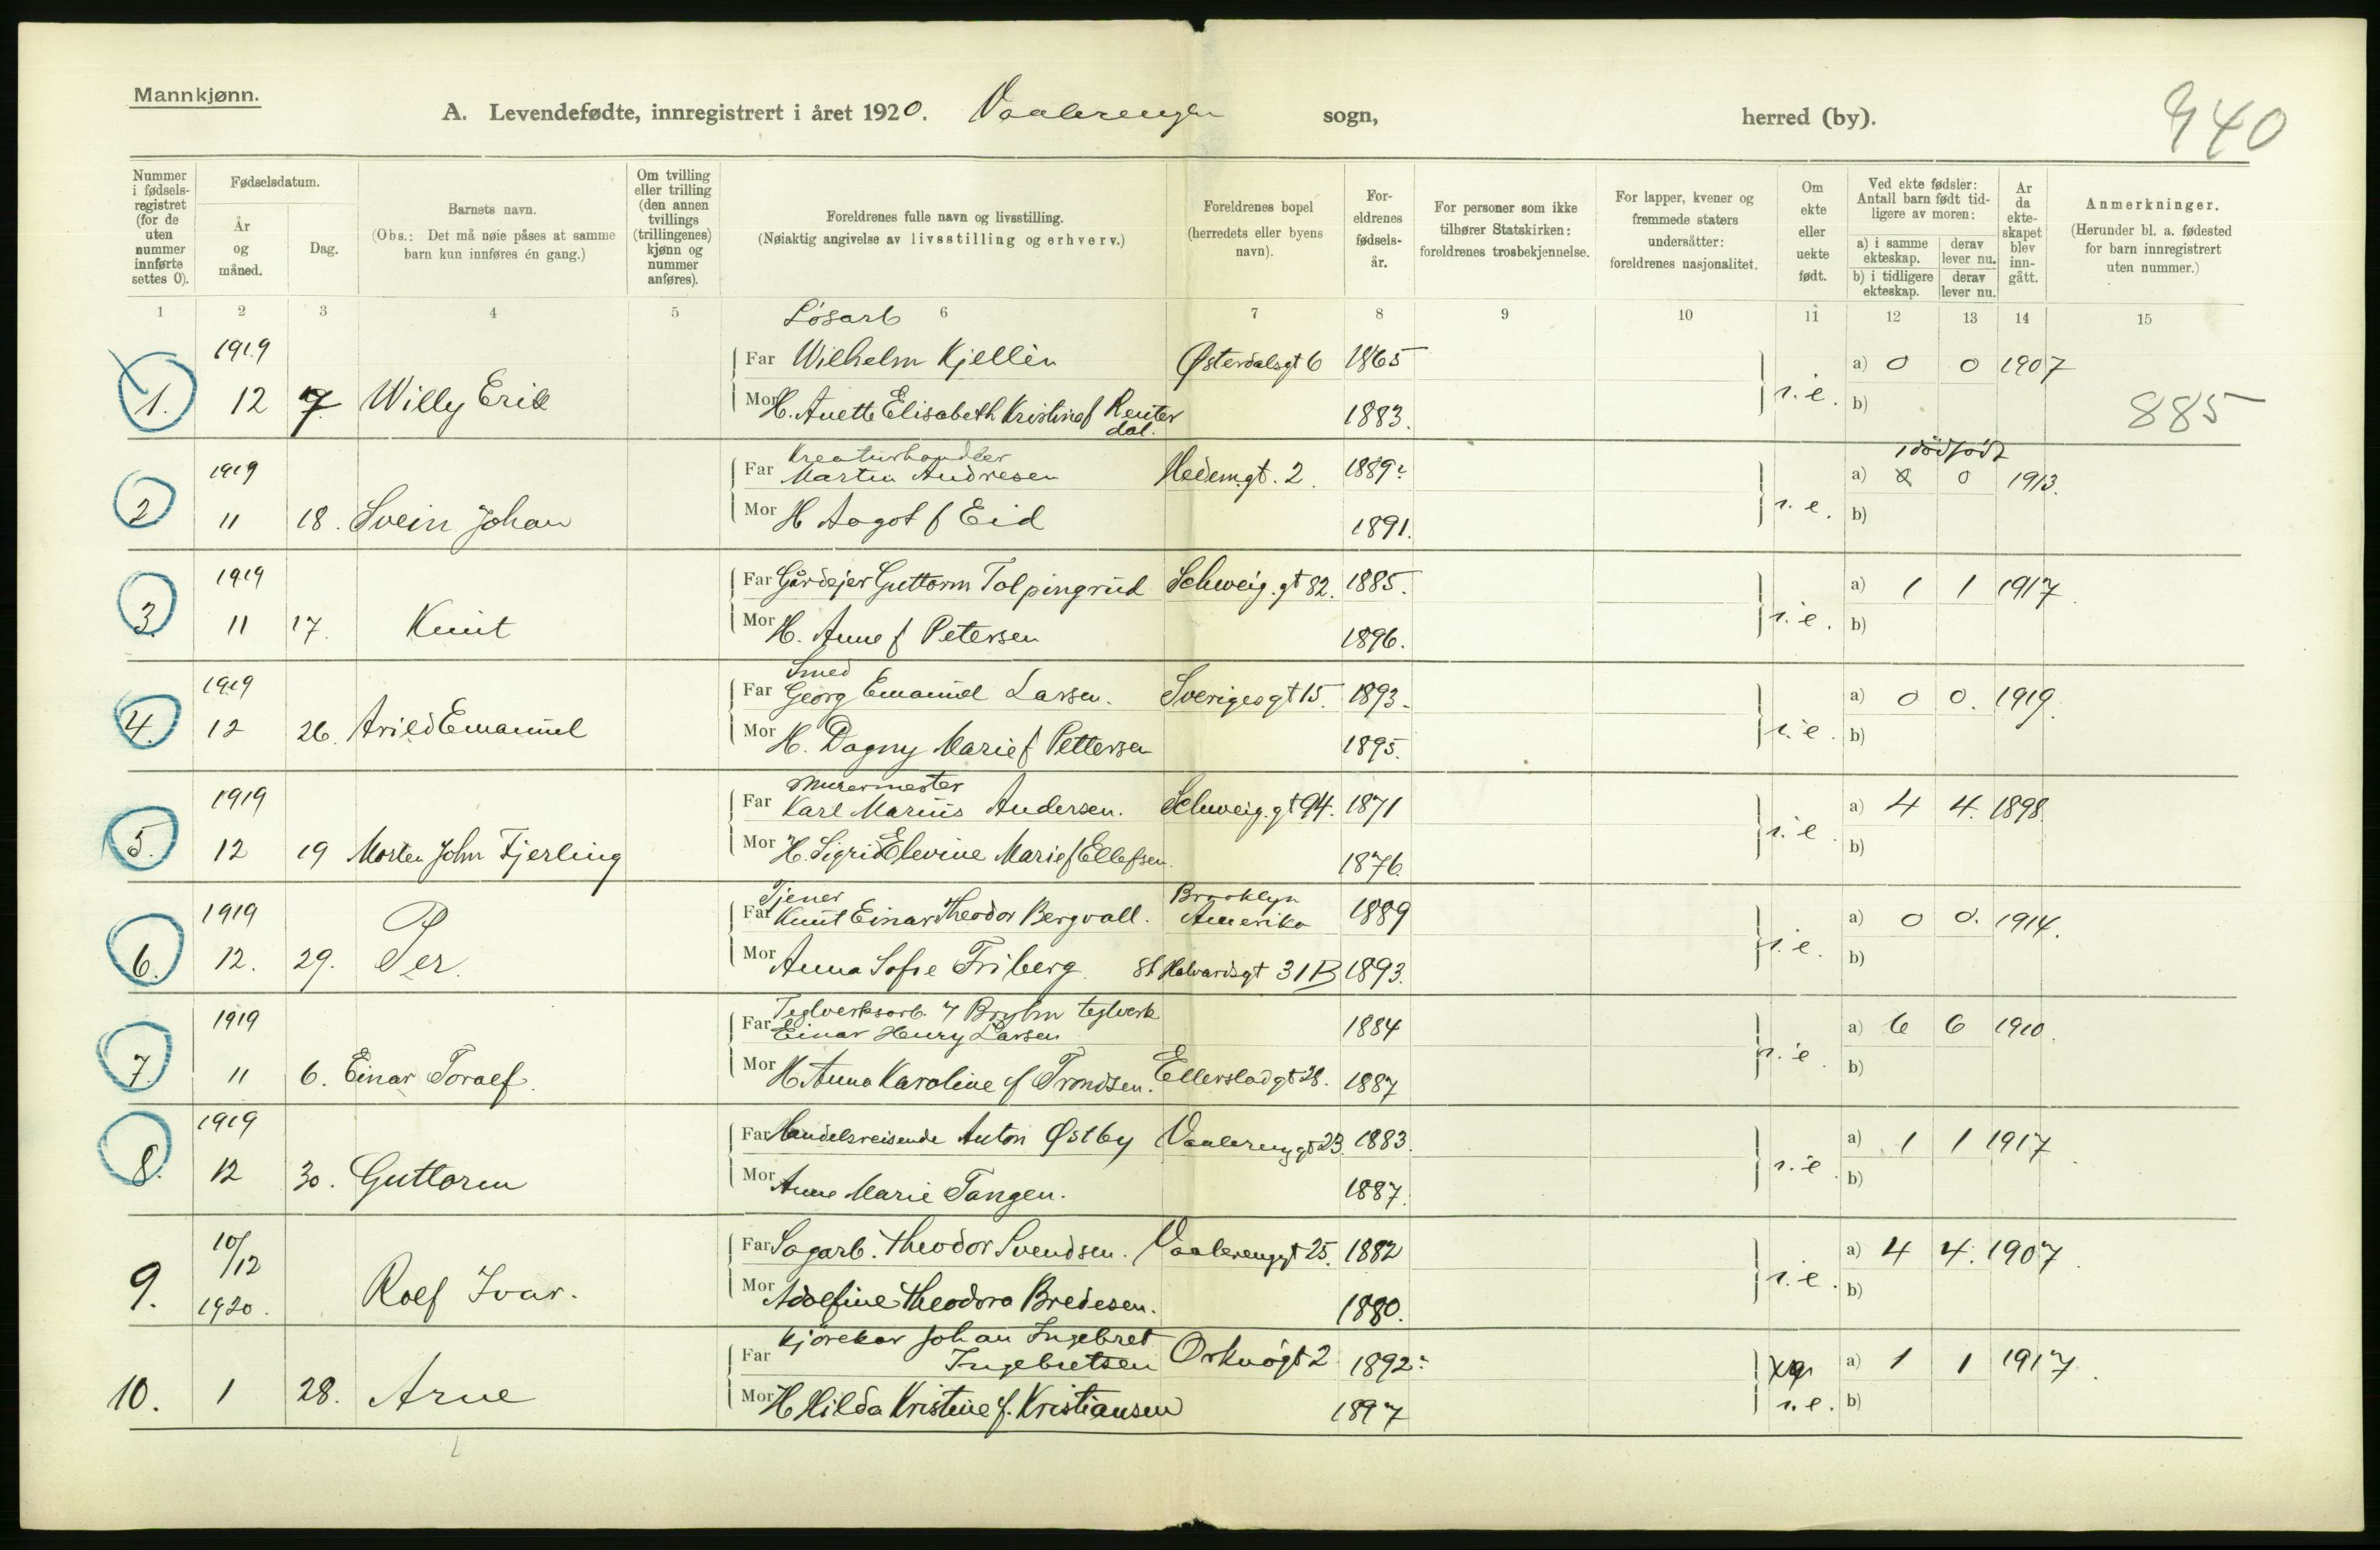 Mannkjønn.
A. Levendefødte, innregistrert i året 1920. Vaalerengen sogn, herred (by).
940
Nummer i fødsels-registret (for de uten nummer innførte settes 0).
Fødselsdatum.
År og måned.
Dag.
Barnets navn.
(Obs.: Det må nøie påses at samme barn kun innføres én gang.)
Om tvilling eller trilling (den annen tvillings (trillingenes) kjønn og nummer anføres).
Foreldrenes fulle navn og livsstilling.
(Nøiaktig angivelse av livsstilling og erhverv.)
Foreldrenes bopel (herredets eller byens navn).
For-eldrenes fødsels-år.
For personer som ikke tilhører Statskirken: foreldrenes trosbekjennelse.
For lapper, kvener og fremmede staters undersåtter: foreldrenes nasjonalitet.
Om ekte eller uekte født.
Ved ekte fødsler: Antall barn født tid-ligere av moren:
a) i samme ekteskap.
derav lever nu.
b) i tidligere ekteskap.
derav lever nu.
Ar da ekte-skapet blev inn-gått.
Anmerkninger.
(Herunder bl. a. fødested for barn innregistrert uten nummer.)
1 2 3 4 5 6 7 8 9 10 11 12 13 14 15
Løsarb
1919 Far Wilhelm Kjellèn Østerdalsgt 6 1865 a) 0 0 1907
1. 12 7 Willy Erik Mor H. Anette Elisabeth Kristine f Reuter 1883. e. b) 885
dal.
Kreaturhandler 1 dödfödt
1919 Far Martin Andresen Hedem.gt. 2. 1889 a) 0 1913.
2 11 18. Svein Johan Mor H Aagot f Eid 1891. e. b)
1919 Far Gårdejer Guttorm Tolpingrud Schweig.gt 82. 1885. a) 1 1 1917.
3. 11 17. Knut Mor H. Anne f Petersen 1896. e. b)
Smed
1919 Far Georg Emanuel Larsen. Sverigesgt 15. 1893. a) 0 0. 1919.
4. 12 26. Arild Emanuel Mor H. Dagny Marie f Pettersen 1895. e. b)
Murermester
1919 Far Karl Marius Andersen. Schweig.gt 94. 1871 a) 4 4. 1898.
5. 12 19 Morten John Fjerling Mor H. Sigrid Elevine Marie f Ellefsen. 1876. e. b)
Tjener Brooklyn
1919 Far Knut Einar Theodor Bergvall. Amerika 1889 a) 0 0. 1914.
6. 12. 29. Per. Mor Anna Sofie Friberg St Halvardsgt 31B 1893. e. b)
Teglverksarb. Bryhn teglverk
1919 Far Einar Henry Larsen 1884 a) 6 6 1910.
7. 11 6. Einar Toralf. Mor H Anna Karoline f Trondsen. Ellersladgt 28. 1887 e. b)
1919 Far Handelsreisende Anton Østby Vaalerenggt 23. 1883. a) 1 1 1917.
8. 12 30. Guttorm Mor Anne Marie Tangen. 1887. e. b)
10/12 Far Sagarb. Theodor Svendsen. Vaalerenggt 25. 1882 a) 4 4. 1907.
9. 1920. Rolf Ivar. Mor Adolfine Theodora Bredesen. 1880. e. b)
Kjörekar Johan Ingebret
Far Ingebretsen Orknøgt 2 1892 a) 1 1 1917.
10. 1 28. Arne Mor H Hilda Kristine f. Kristiansen 1897 e. b)